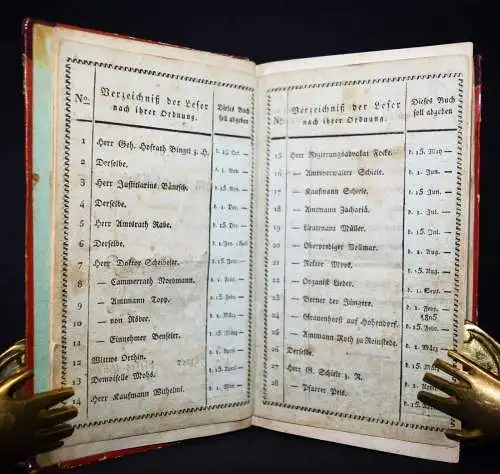 No.
Verzeichniß der Leser
nach ihrer Ordnung.
Dieses Buch
soll abgeben
1 Herr Geh. Hofrath z. H. d. 15. Oct. —
2 Derselbe. d. 1. Nov. —
3 Herr Justitiarius Bänsch. d. 15. Nov. —
4 Derselbe. d. 1. Dec. —
5 Herr Amtsrath Rabe. d. 15. Dec. —
6 Derselbe. d. 1. Jan.
7 Herr Doktor d. 15. Jan. —
8 — Cammerrath Nordmann. d. 1. Febr. —
9 — Amtmann Topp. d. 15. Febr. —
10 — von Röder. d. 1. März —
11 — Einnehmer Benseler. d. 15. März —
12 Wittwe Orthin. d. 1. April —
13 Demoiselle Mohs. d. 15. April —
14 Herr Kaufmann Wilhelmi. d. 1. May —
No.
Verzeichniß der Leser
nach ihrer Ordnung.
Dieses Buch
soll abgeben
15 Herr Regierungsadvokat Focke. d. 15. May —
16 — Amtsverwalter Schiele. d. 1. Jun. —
17 — Kaufmann Schiele. d. 15. Jun. —
18 — Amtmann Zachariä. d. 1. Jul. —
19 — Lieutenant Müller. d. 15. Jul. —
20 — Oberprediger Vollmar. d. 1. Aug. —
21 — Rektor d. 15. Aug. —
22 — Organist Lieder. d. 1. Sept. —
23 — Berner der Jüngere. d. 1. Febr.
1805
24 — Grauenhorst auf Hohendorf. d. 15. Febr. —
25 — Amtmann Roth zu Reinstedt. d. 1. März —
26 Derselbe. d. 15. März —
27 Herr G. Schiele z. R. d. 1. April —
28 — Pfarrer d. 15. April —